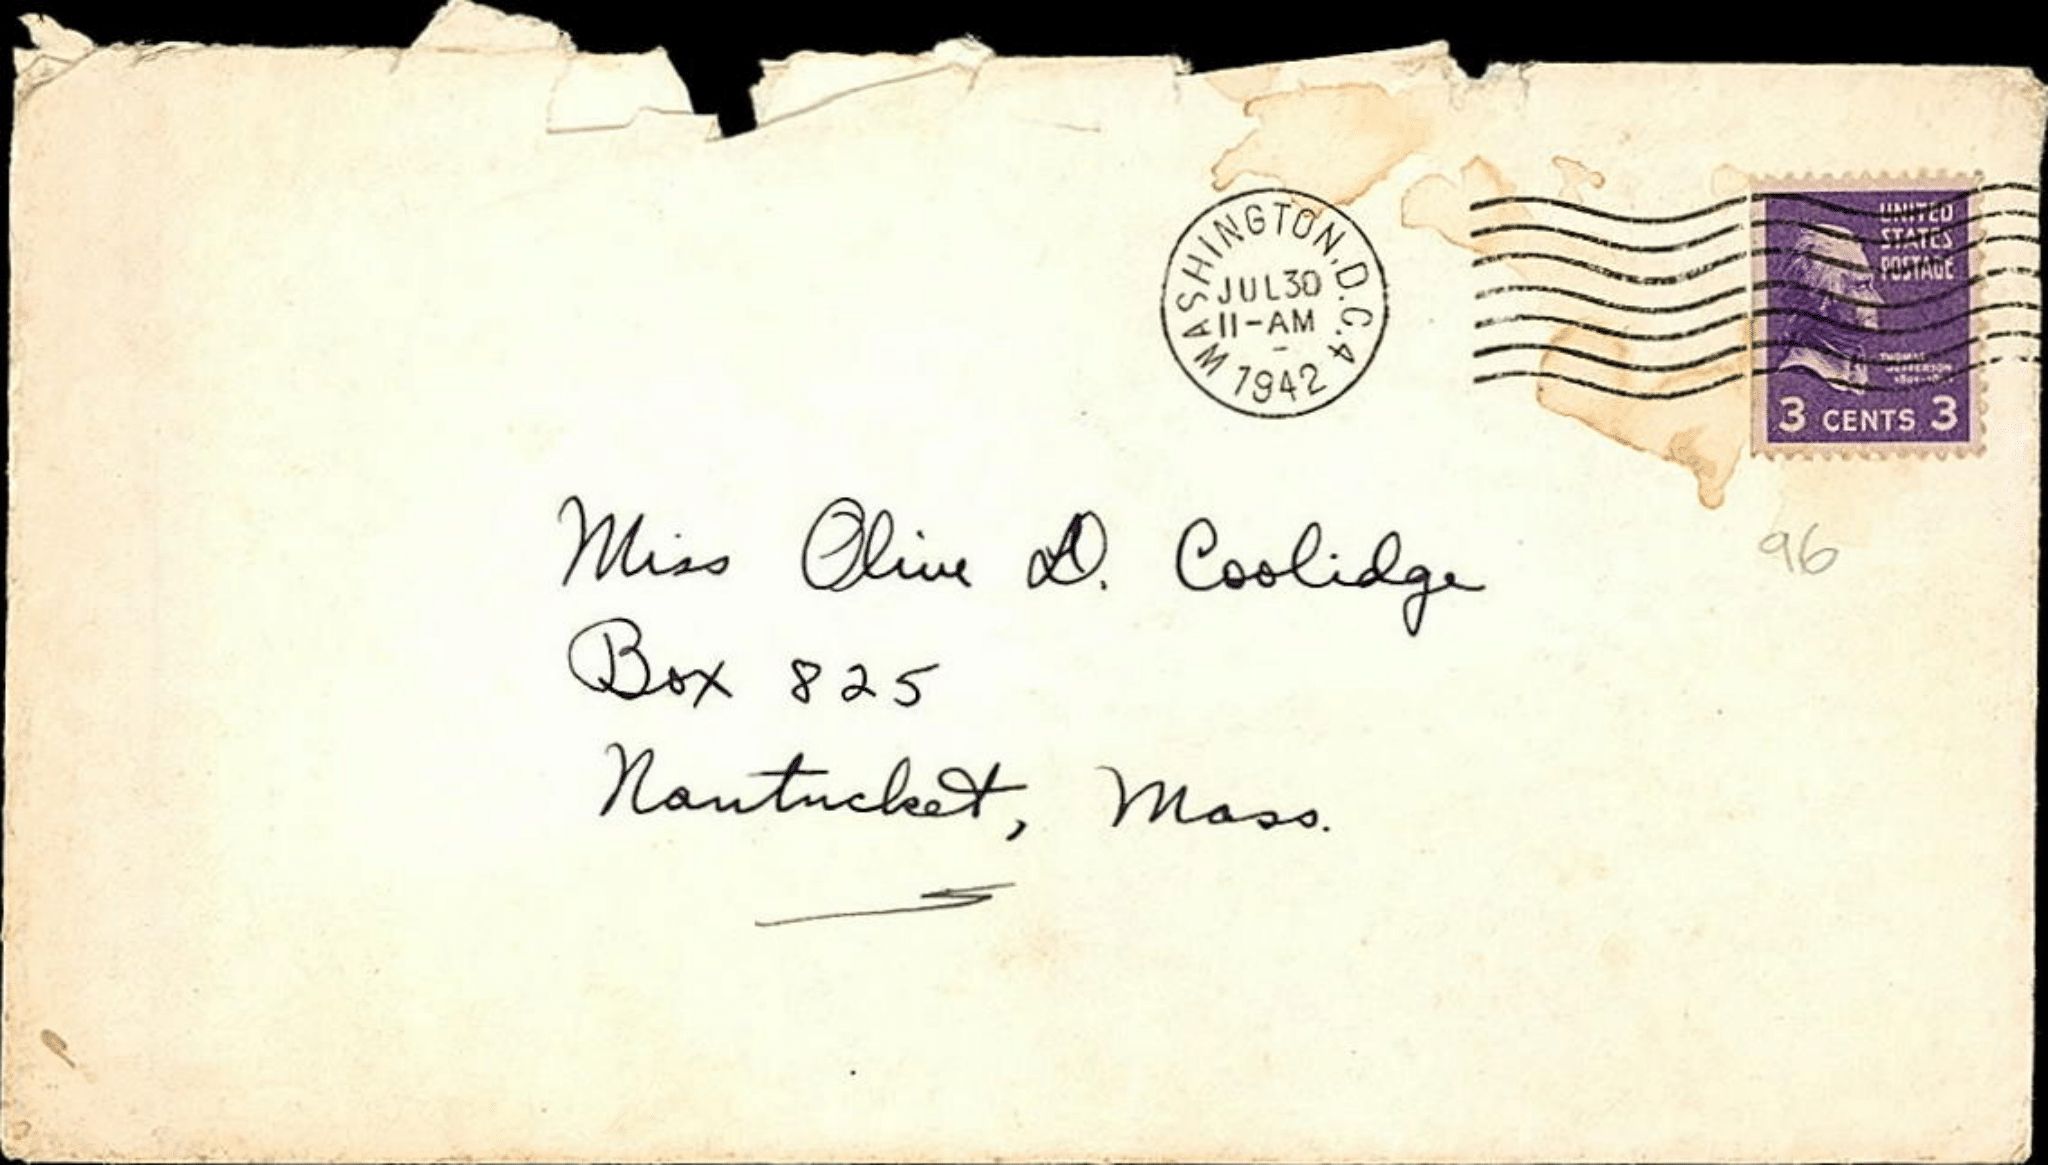 WASHINGTON, D.C. 4
JUL 30
11-AM
1942
UNITED
STATES
POSTAGE
THOMAS
JEFFERSON
3 CENTS 3
96
Miss Olive D. Coolidge
Box 825
Nantucket, Mass.